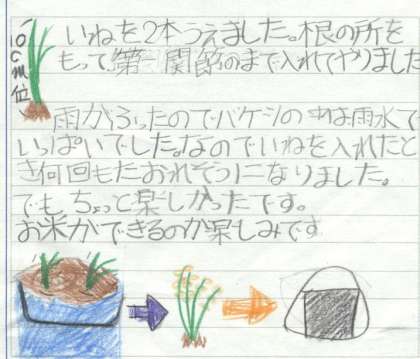 10cm位
いねを2本うえました。根の所を
もって、第一関節のまで入れてやりました
雨がふったのでバケツの中は雨水で
いっぱいでした。なのでいねを入れたと
き何回もたおれそうになりました。
でも、ちょっと楽しかったです。
お米ができるのが楽しみです